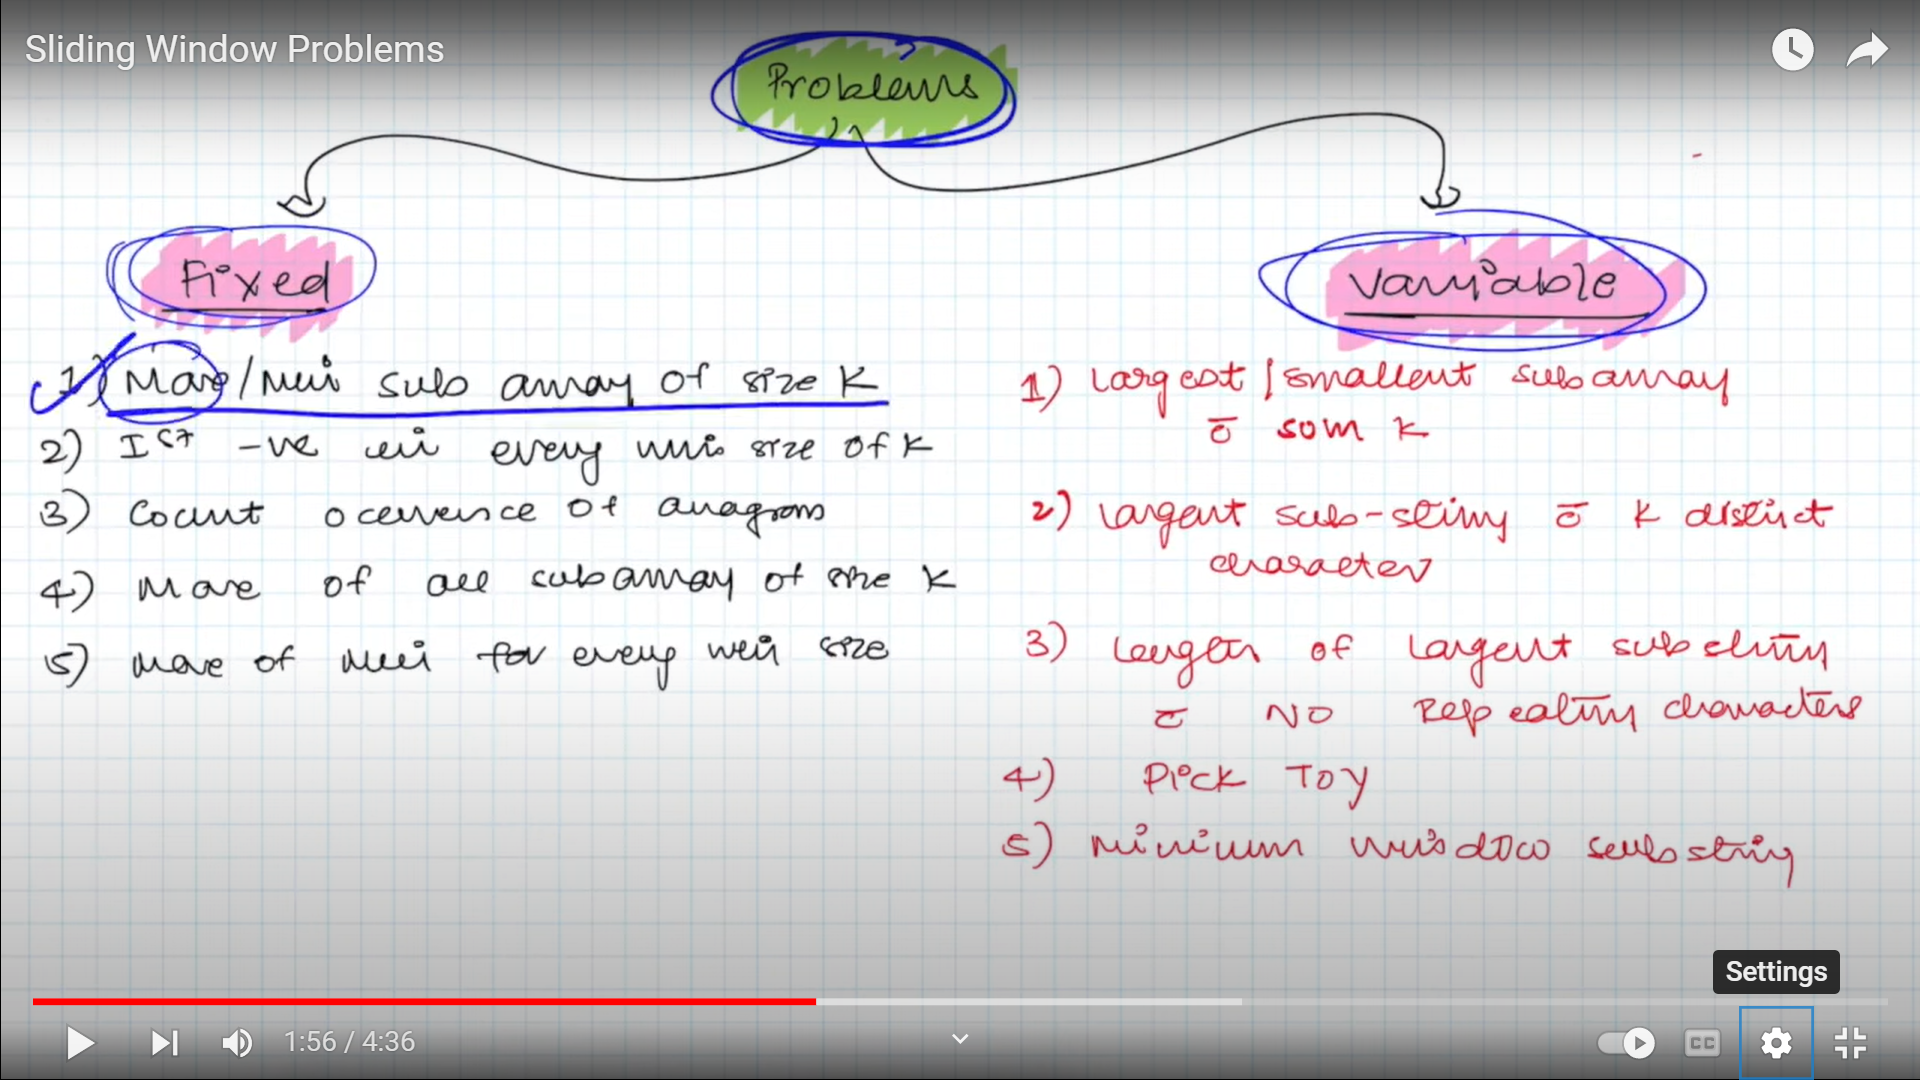 Sliding Window Problems
Problems
Fixed
Variable
1) Max/Min sub array of size K
2) Ist -ve in every win size of K
3) Count occurence of anagram
4) Max of all subarray of size K
5) Max of Min for every win size
1) Largest/smallest subarray
c̄ sum K
2) Largest sub-string c̄ K distinct
character
3) Length of largest substring
c̄ NO Repeating characters
4) Pick Toy
5) Minimum window substring
Settings
1:56 / 4:36
CC